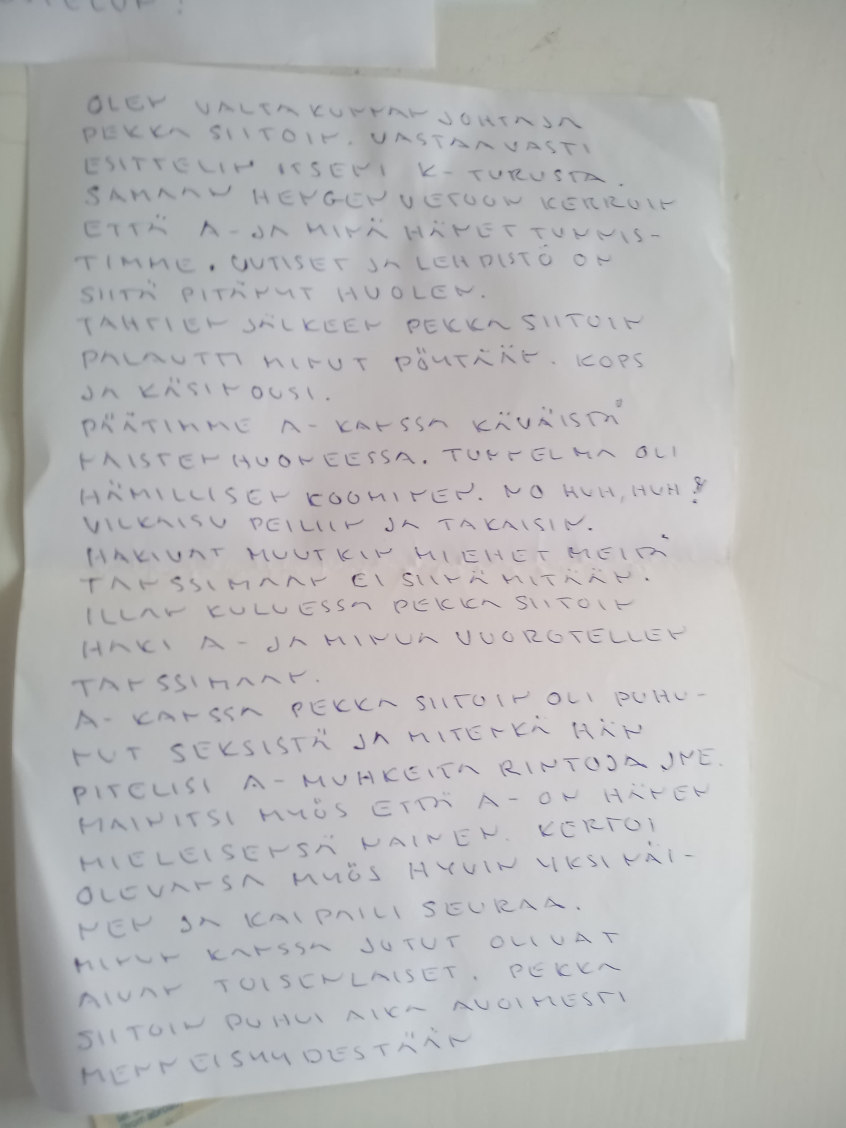 OLEN VALTAKUNNAN JOHTAJA
PEKKA SIITOIN. VASTAAVASTI
ESITTELIN ITSENI K- TURUSTA.
SAMAAN HENGENVETOON KERROIN
ETTÄ A- JA MINÄ HÄNET TUNNIS-
TIMME. UUTISET JA LEHDISTÖ ON
SIITÄ PITÄNYT HUOLEN.
TAHTIEN JÄLKEEN PEKKA SIITOIN
PALAUTTI MINUT PÖYTÄÄN. KOPS
JA KÄSI NOUSI.
PÄÄTIMME A- KANSSA KÄVÄISTÄ
NAISTENHUONEESSA. TUNNELMA OLI
HÄMILLISEN KOOMINEN. NO HUH, HUH!
VILKAISU PEILIIN JA TAKAISIN.
HAKIVAT MUUTKIN MIEHET MEITÄ
TANSSIMAAN EI SIINÄ MITÄÄN.
ILLAN KULUESSA PEKKA SIITOIN
HAKI A- JA MINUA VUOROTELLEN
TANSSIMAAN.
A- KANSSA PEKKA SIITOIN OLI PUHU-
NUT SEKSISTÄ JA MITENKÄ HÄN
PITELISI A- MUHKEITA RINTOJA JNE.
MAINITSI MYÖS ETTÄ A- ON HÄNEN
MIELEISENSÄ NAINEN. KERTOI
OLEVANSA MYÖS HYVIN YKSINÄI-
NEN JA KAIPAILI SEURAA.
MINUN KANSSA JUTUT OLIVAT
AIVAN TOISENLAISET. PEKKA
SIITOIN PUHUI AIKA AVOIMESTI
MENNEISYYDESTÄÄN